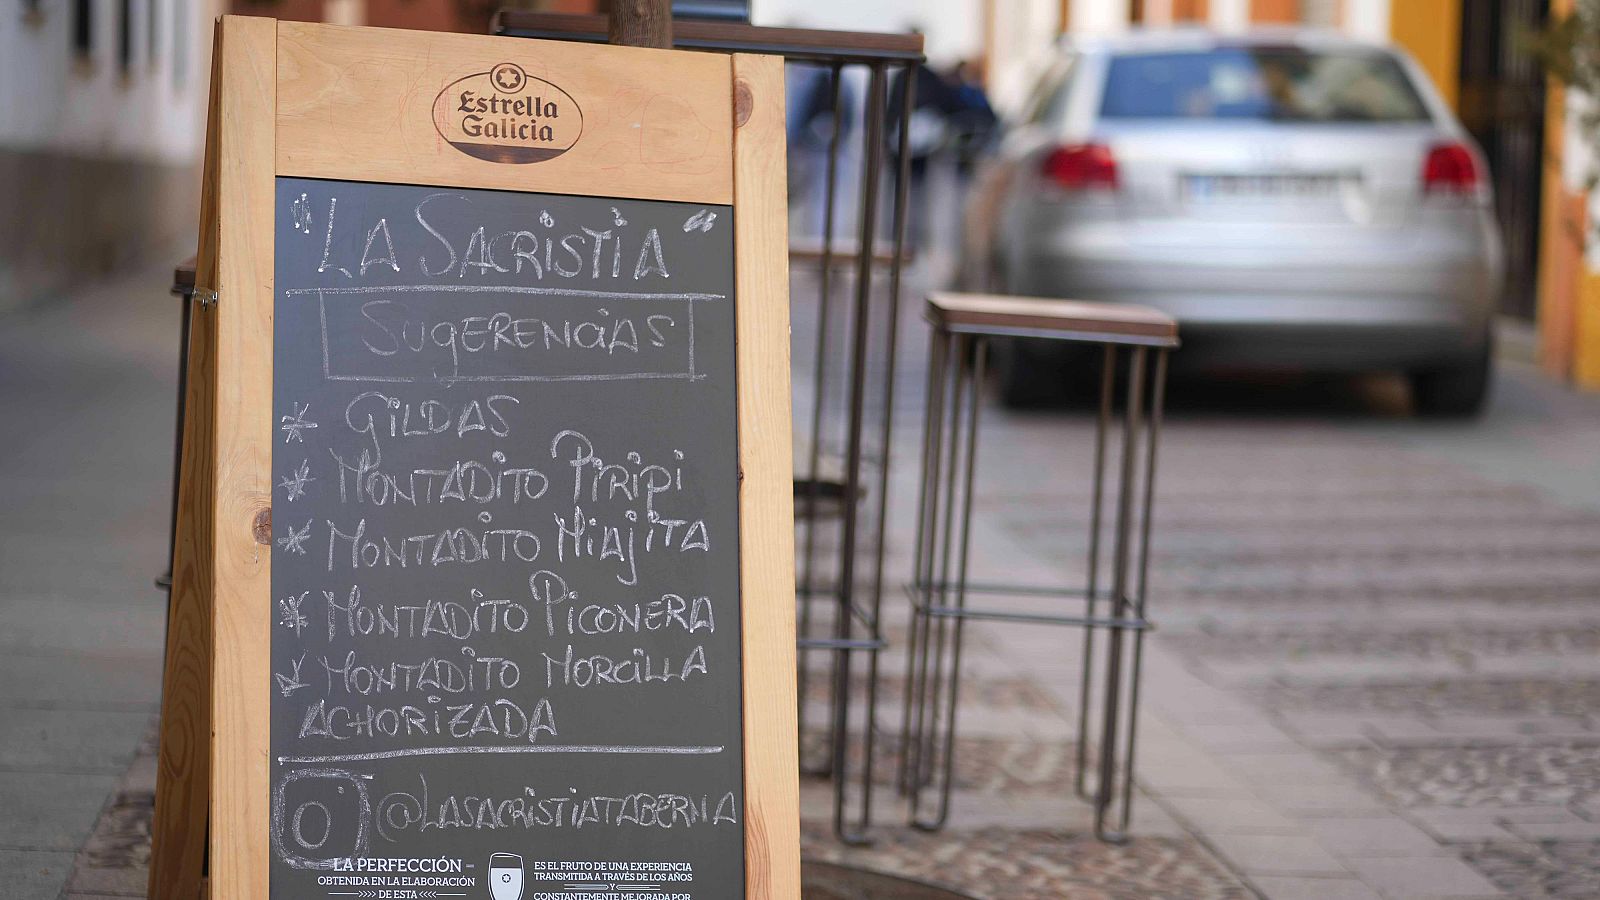 Estrella
Galicia
"LA SACRISTIA"
SUGERENCIAS
* GILDAS
* MONTADITO PIRIPI
* MONTADITO MIAJITA
* MONTADITO PICONERA
* MONTADITO MORCILLA
ACHORIZADA
@LASACRISTIATABERNA
LA PERFECCIÓN
OBTENIDA EN LA ELABORACIÓN
DE ESTA
ES EL FRUTO DE UNA EXPERIENCIA
TRANSMITIDA A TRAVÉS DE LOS AÑOS
Y
CONSTANTEMENTE MEJORADA POR